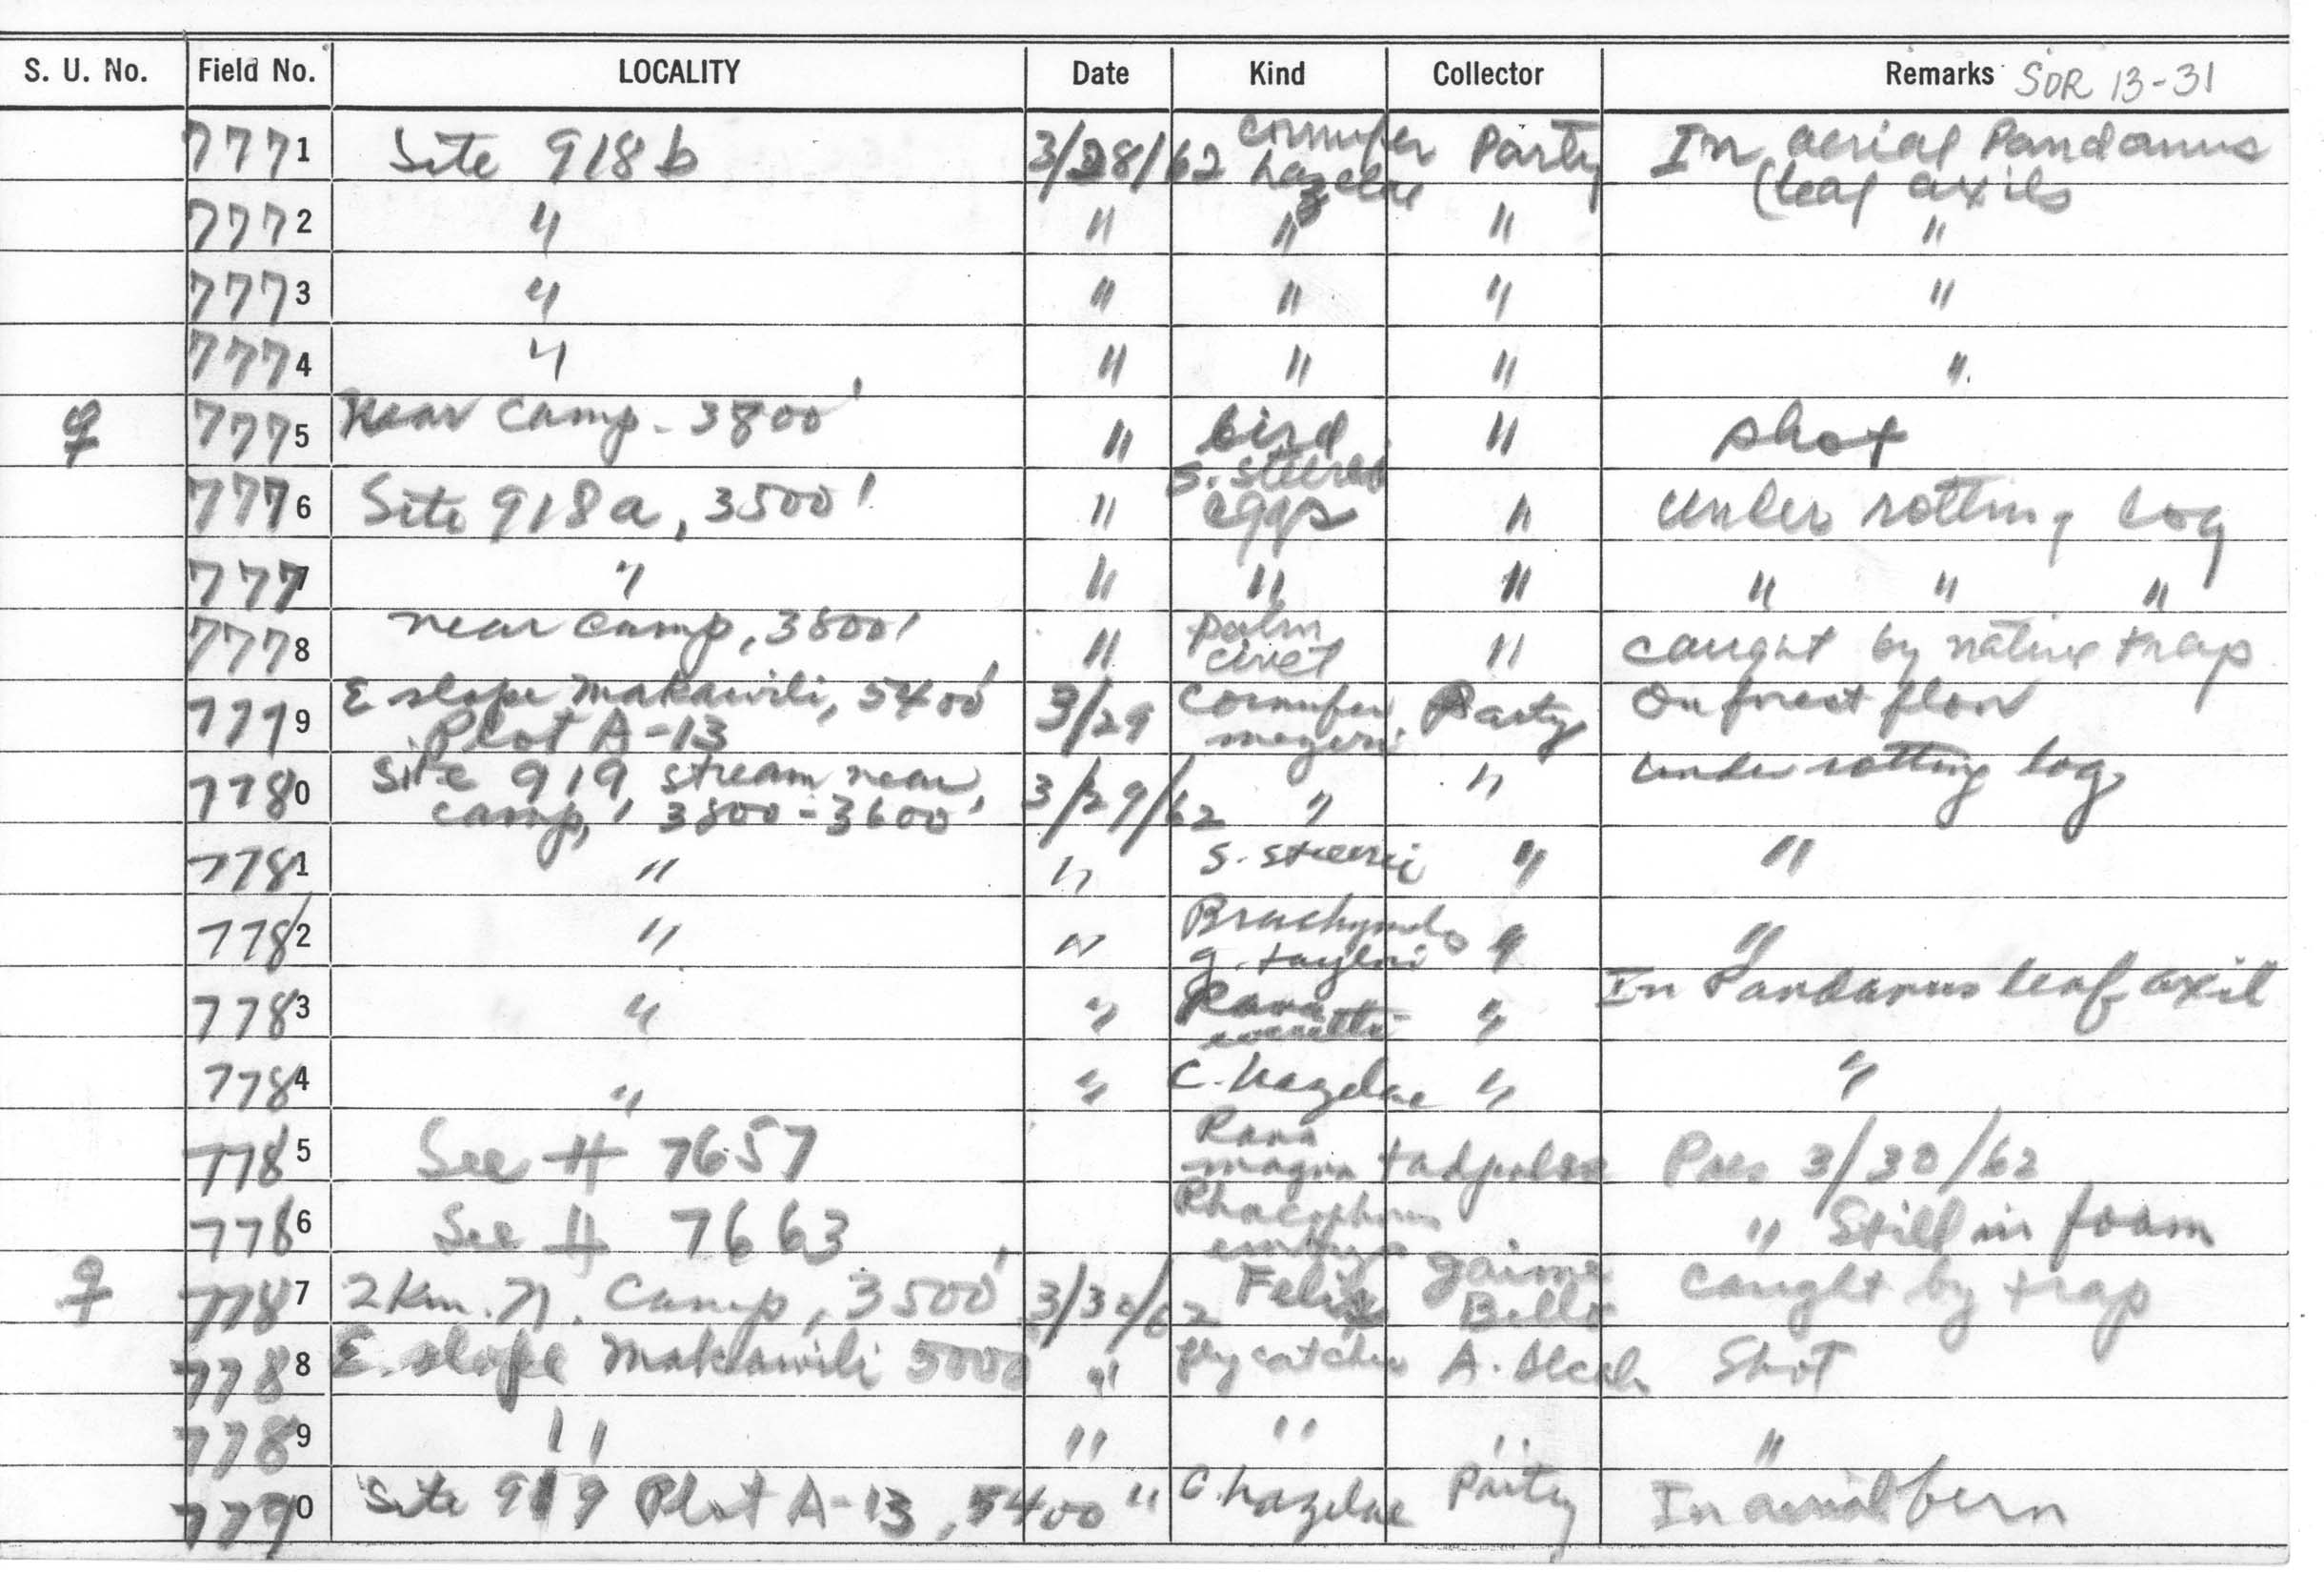 S. U. No. Field No. LOCALITY Date Kind Collector Remarks SDR 13-31
7771 Site 918b 3/28/62 Cornufer hazelae Party In aerial Pandanus (leaf axils
7772 " " " " "
7773 " " " " "
7774 " " " " "
♀ 7775 Near Camp - 3800' " bird " shot
7776 Site 918a, 3500' " S. steerei eggs " Under rotting log
7777 " " " " " " "
7778 near camp, 3800' " palm civet " caught by native trap
7779 E slope Makawili, 5400' Plot A-13 3/29 Cornufer meyeri Party On forest floor
7780 Site 919 stream near camp, 3800'-3600' 3/29/62 " " Under rotting log
7781 " " S. steerei " "
7782 " " Brachymeles g. taylori " "
7783 " " Rana everetti " In Pandanus leaf axil
7784 " " C. hazelae " "
7785 See # 7657 Rana magna tadpoles Pres 3/30/62
7786 See # 7663 Rhacophorus embryos " Still in foam
♀ 7787 2 Km. N. Camp, 3500' 3/30/62 Felis Jaime Bello Caught by trap
7788 E. slope Makawili 5000 " flycatcher A. Alcala Shot
7789 " " " " "
7790 Site 919 Plot A-13, 5400 " C. hazelae Party In aerial fern